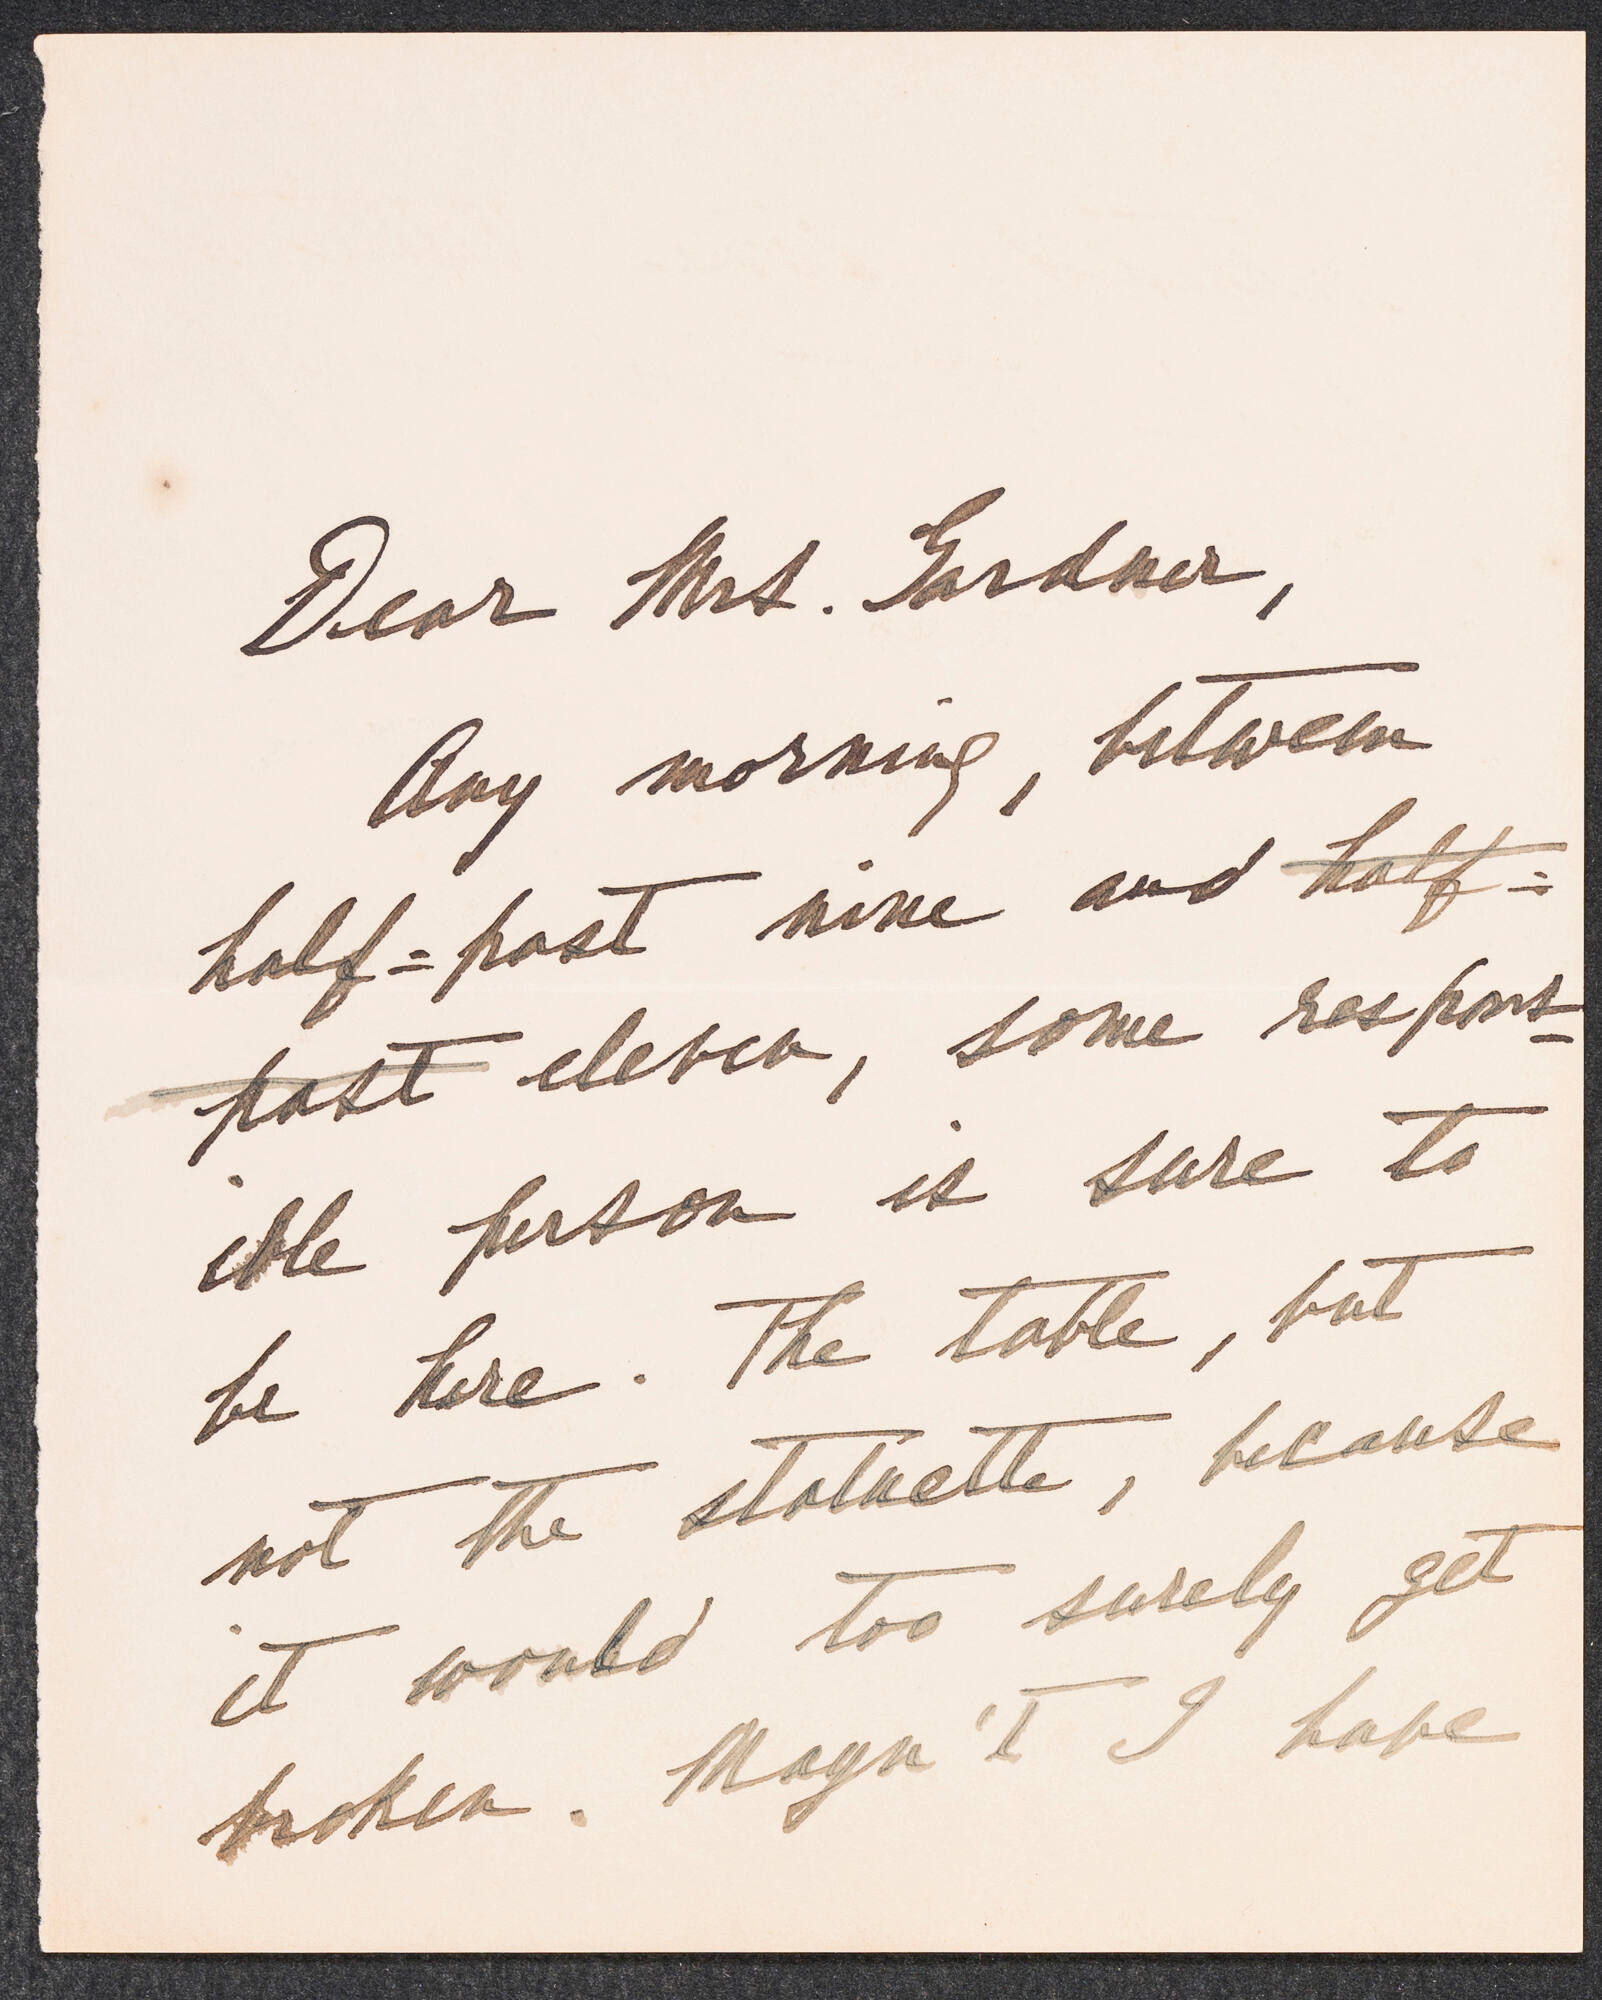 Dear Mrs. Gardner,
Any morning, between
half=past nine and half=
past eleven, some respons=
ible person is sure to
be here. The table, but
not the statuette, because
it would too surely get
broken. Mayn't I have